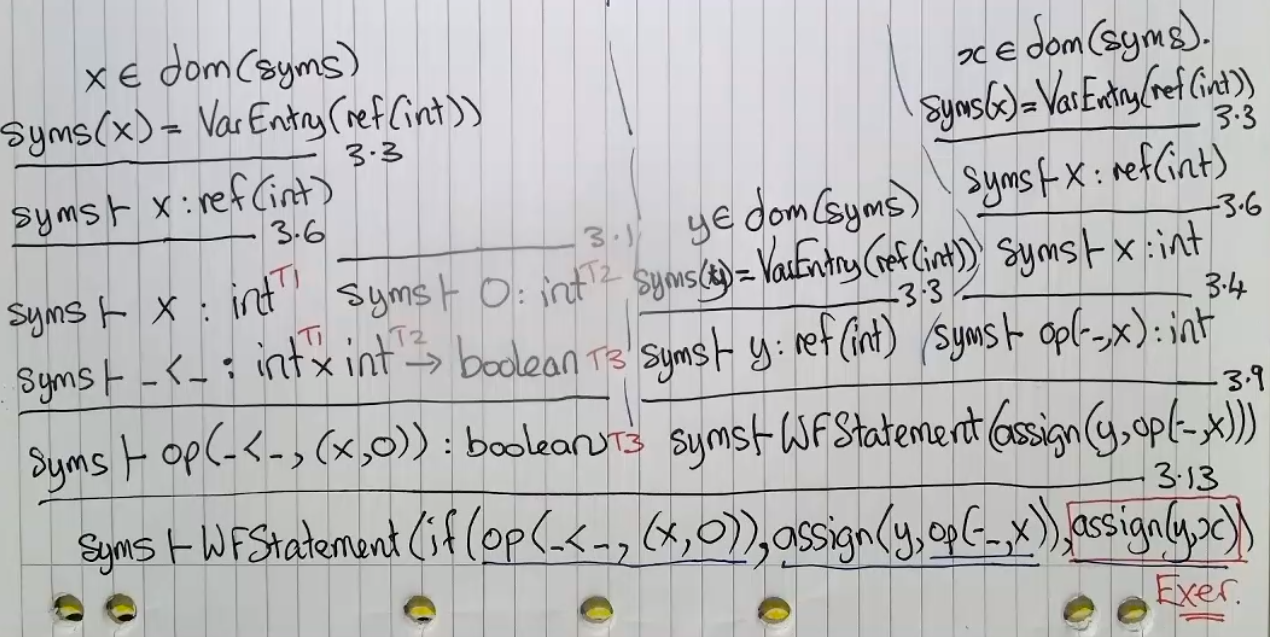 x ∈ dom(syms)
syms(x) = VarEntry(ref(int))
3.3
syms ⊢ x : ref(int)
3.6
syms ⊢ x : int T1
3.1
syms ⊢ 0 : int T2
syms ⊢ _<_ : int T1 × int T2 → boolean T3
syms ⊢ op(_<_, (x,0)) : boolean T3
y ∈ dom(syms)
syms(y) = VarEntry(ref(int))
3.3
syms ⊢ y : ref(int)
x ∈ dom(syms).
syms(x) = VarEntry(ref(int))
3.3
syms ⊢ x : ref(int)
3.6
syms ⊢ x : int
3.4
syms ⊢ op(-_,x) : int
3.9
syms ⊢ WFStatement(assign(y, op(-_,x)))
3.13
syms ⊢ WFStatement(if(op(_<_, (x,0)), assign(y, op(-_,x)), assign(y,x))
Exer.